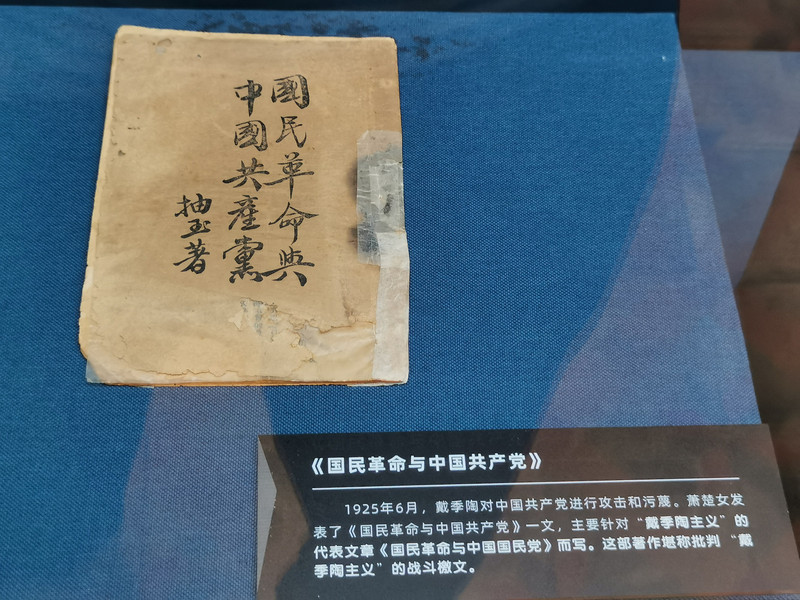 國民革命與
中國共產黨
抽玉著
《国民革命与中国共产党》
1925年6月，戴季陶对中国共产党进行攻击和污蔑。萧楚女发
表了《国民革命与中国共产党》一文，主要针对“戴季陶主义”的
代表文章《国民革命与中国国民党》而写。这部著作堪称批判“戴
季陶主义”的战斗檄文。